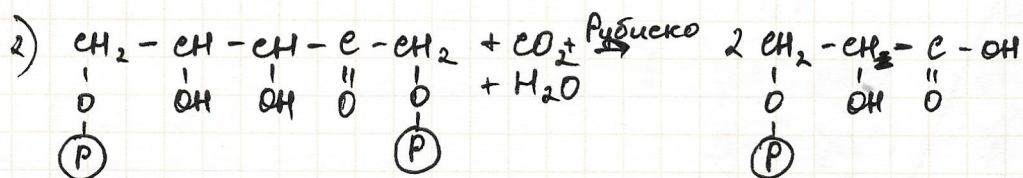 2) CH₂ - CH - CH - C - CH₂ + CO₂ + Рубиско → 2 CH₂ - CH - C - OH
O OH OH O O + H₂O O OH O
P P P